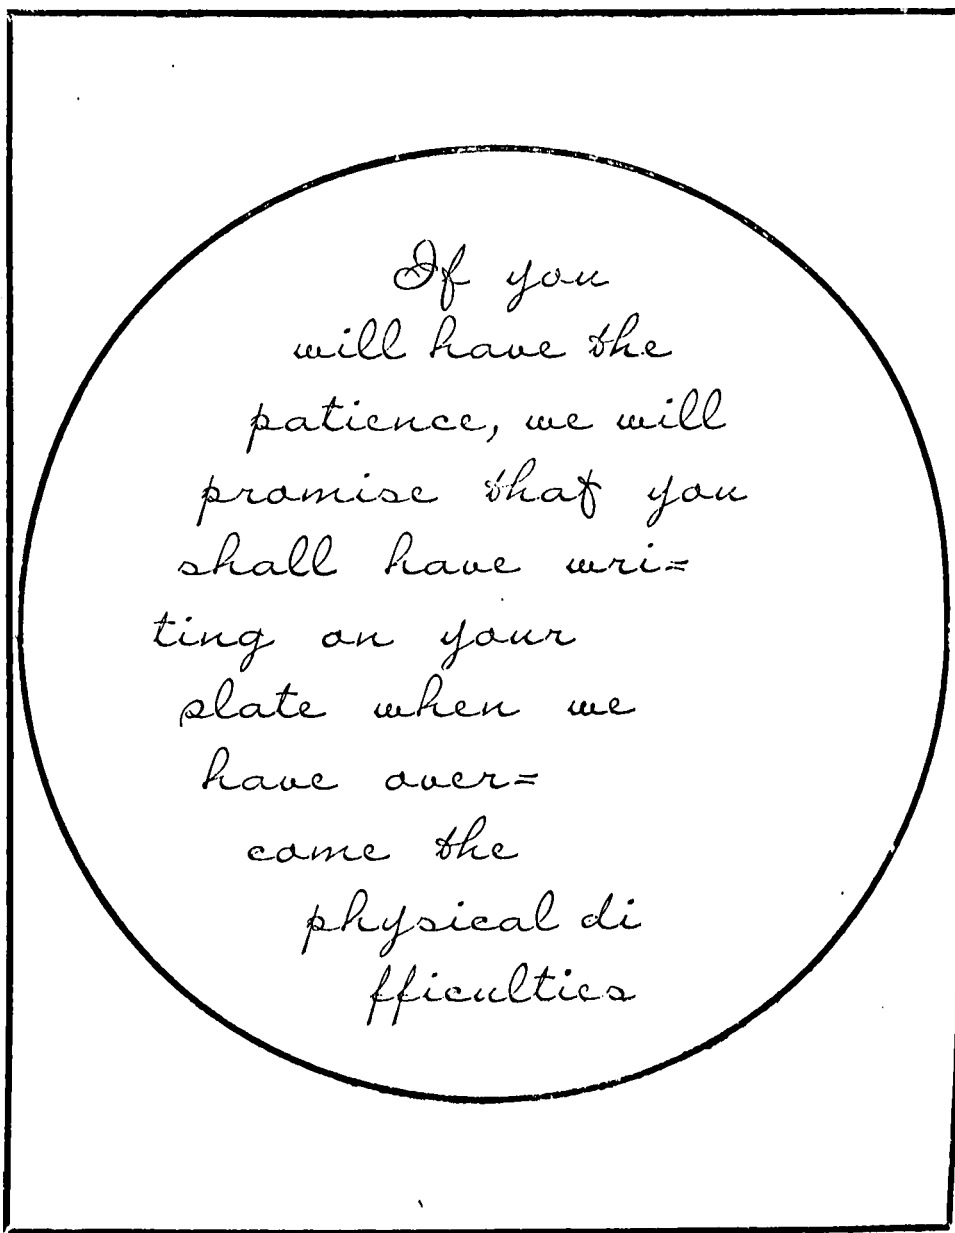 If you
will have the
patience, we will
promise that you
shall have wri=
ting on your
slate when we
have over=
come the
physical di
fficulties